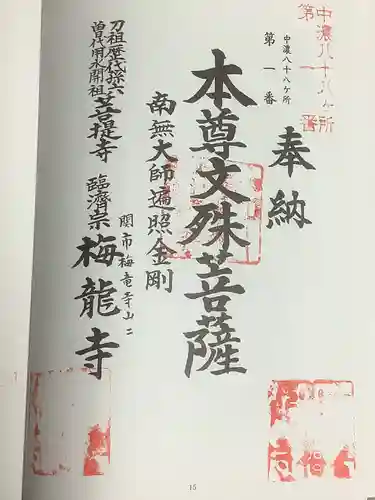 中濃八十八ヶ所
第一番
中濃八十八ヶ所
第一番
奉納
本尊文殊菩薩
南無大師遍照金剛
関市梅竜寺山二
刀祖歴代孫六
曽代用水開祖
菩提寺
臨済宗
梅龍寺
15